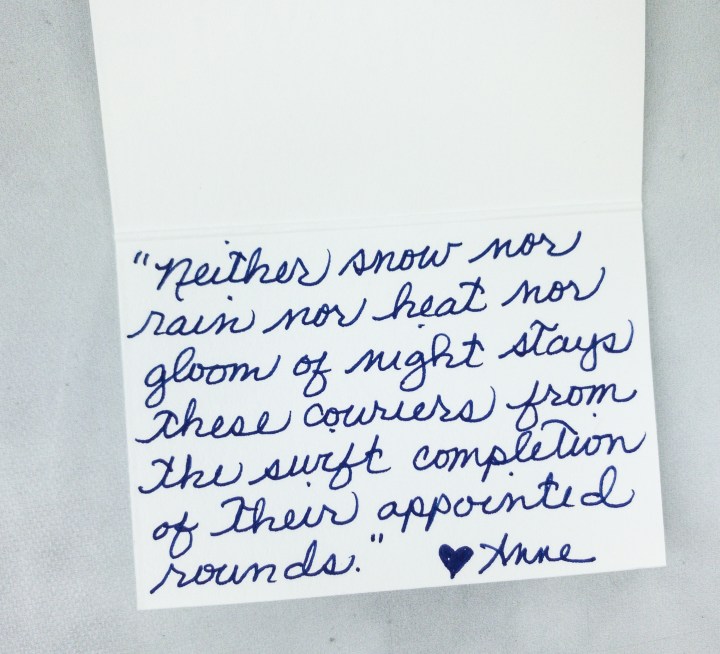 "Neither snow nor
rain nor heat nor
gloom of night stays
these couriers from
the swift completion
of their appointed
rounds." ♥ Anne